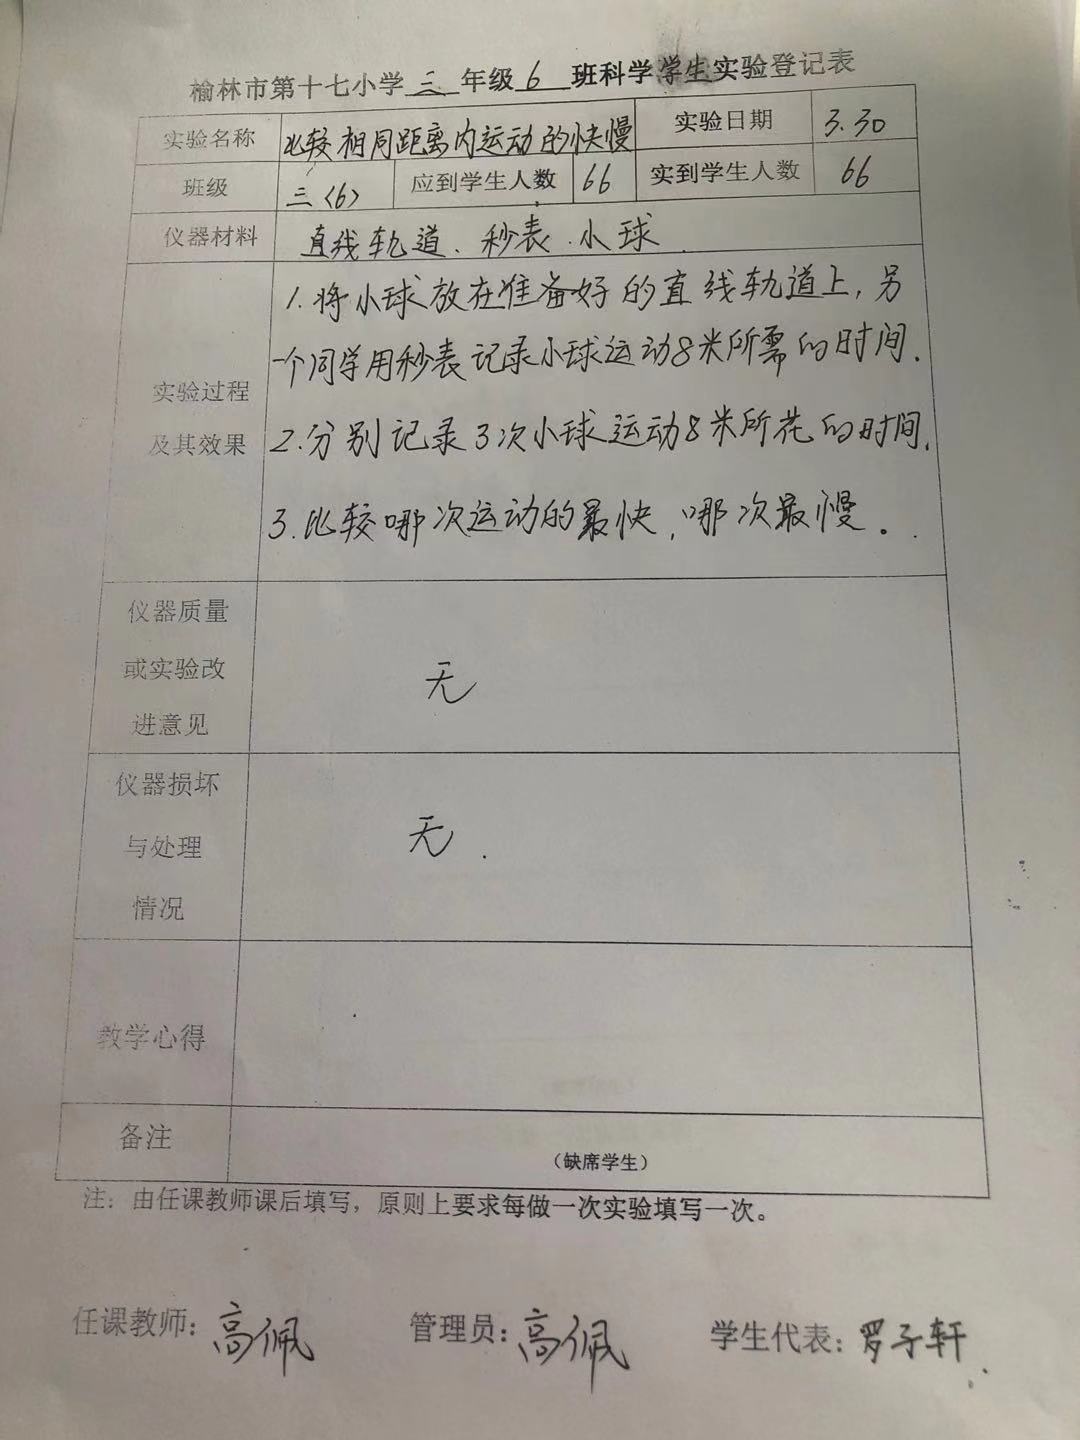 榆林市第十七小学三年级6班科学学生实验登记表
实验名称 比较相同距离内运动的快慢 实验日期 3.30
班级 三(6) 应到学生人数 66 实到学生人数 66
仪器材料 直线轨道、秒表、小球
1.将小球放在准备好的直线轨道上,另
一个同学用秒表记录小球运动8米所需的时间.
实验过程
及其效果
2.分别记录3次小球运动8米所花的时间.
3.比较哪次运动的最快,哪次最慢。
仪器质量
或实验改
进意见
无
仪器损坏
与处理
情况
无.
教学心得
备注
(缺席学生)
注:由任课教师课后填写,原则上要求每做一次实验填写一次。
任课教师:高佩 管理员:高佩 学生代表:罗子轩